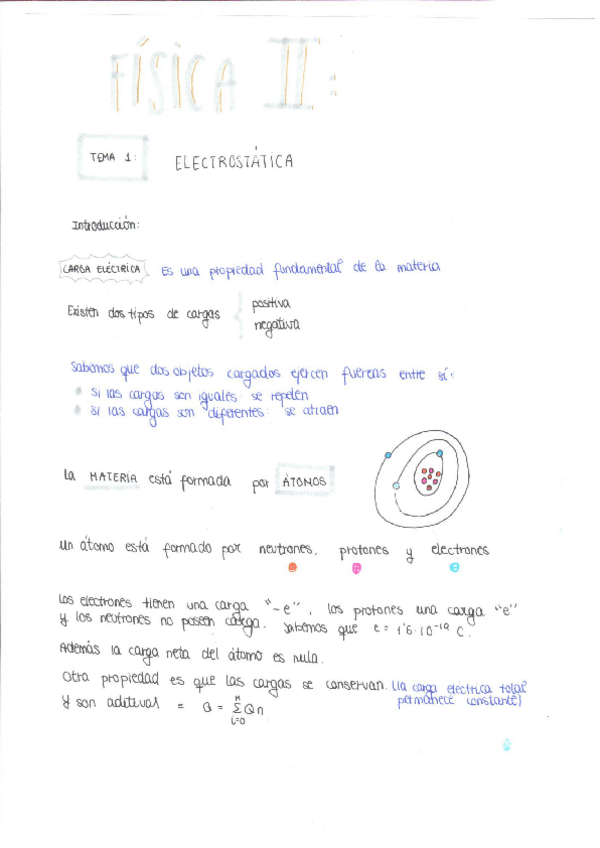 FÍSICA II:
TEMA 1: ELECTROSTÁTICA
Introducción:
CARGA ELÉCTRICA Es una propiedad fundamental de la materia
Existen dos tipos de cargas
positiva
negativa
Sabemos que dos objetos cargados ejercen fuerzas entre sí:
• Si las cargas son iguales: se repelen
• Si las cargas son diferentes: se atraen
La MATERIA está formada por ÁTOMOS
Un átomo está formado por neutrones, protones y electrones
Los electrones tienen una carga "-e", los protones una carga "e"
y los neutrones no poseen carga. Sabemos que e = 1'6·10⁻¹⁹ C.
Además la carga neta del átomo es nula.
Otra propiedad es que las cargas se conservan. (la carga eléctrica total
permanece constante)
Y son aditivas = Q = Σ Qn
n
i=0